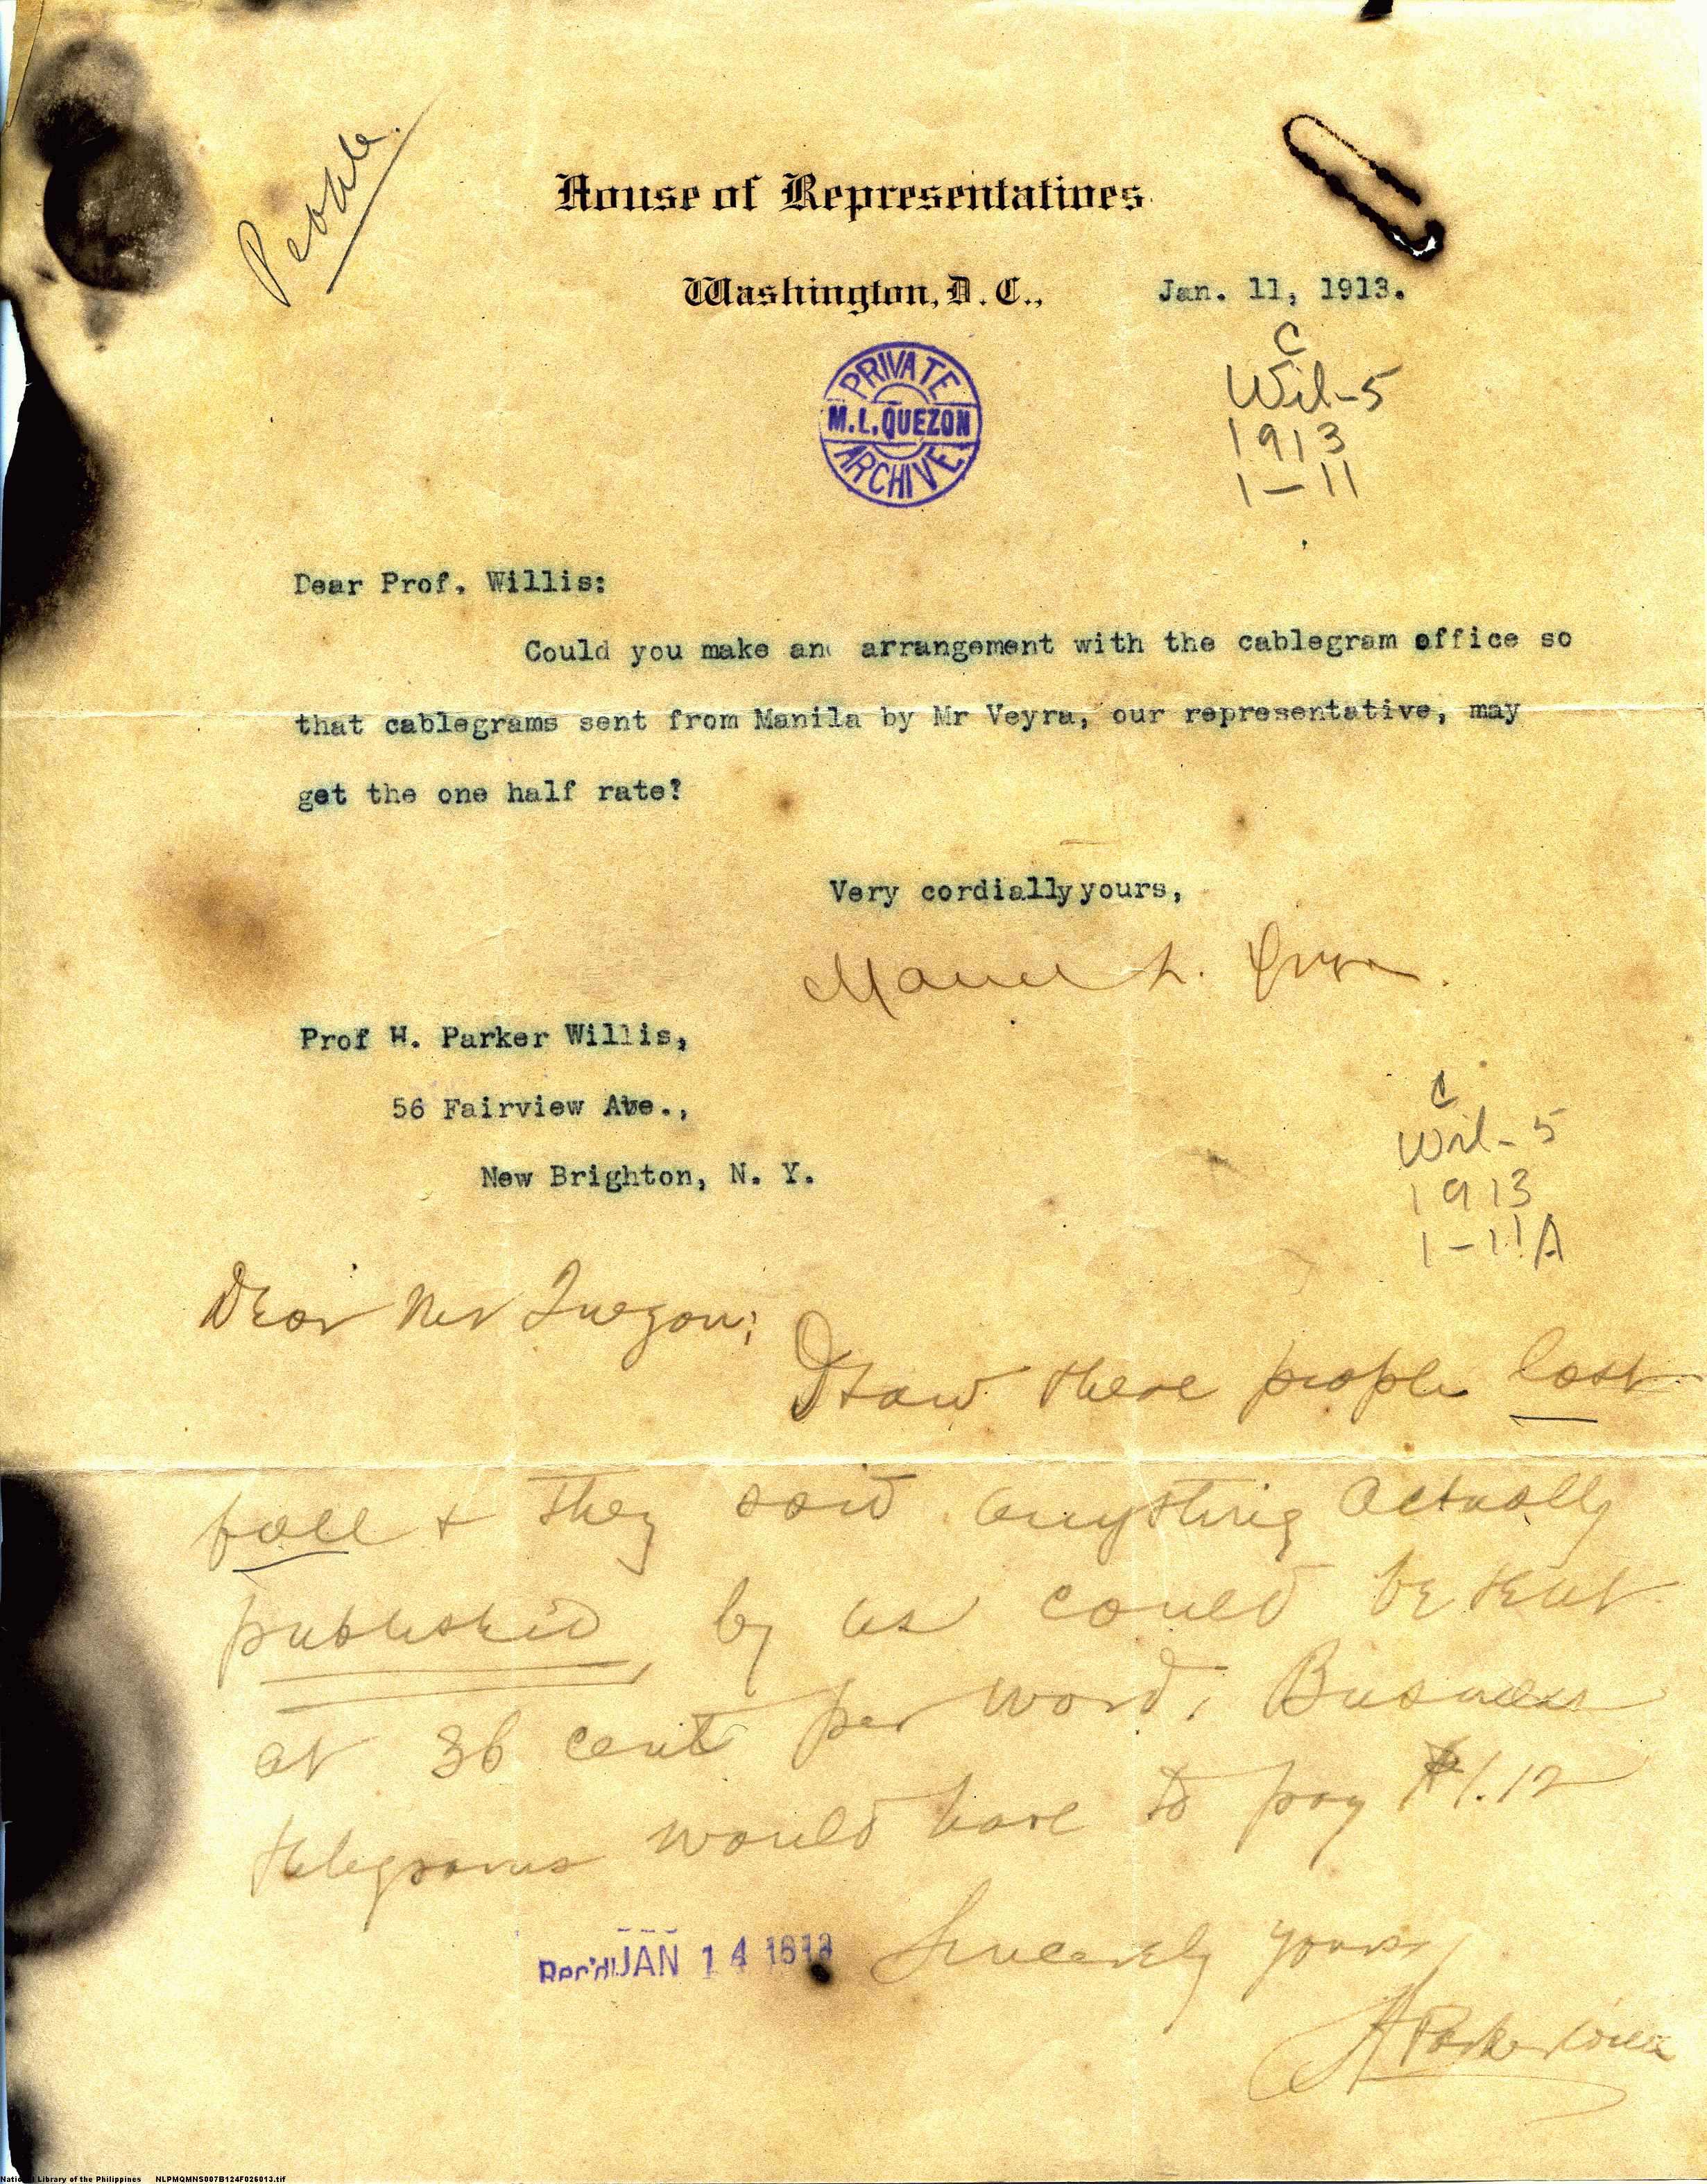 People.
House of Representatives
Washington, D. C., Jan. 11, 1913.
PRIVATE
M.L. QUEZON
ARCHIVE
C
Wil-5
1913
1-11
Dear Prof. Willis:
Could you make an arrangement with the cablegram office so
that cablegrams sent from Manila by Mr Veyra, our representative, may
get the one half rate?
Very cordially yours,
Manuel L. Quezon.
Prof H. Parker Willis,
56 Fairview Ave.,
New Brighton, N. Y.
C
Wil-5
1913
1-11A
Dear Mr Quezon:
I saw these people last
fall & they said anything actually
published, by us could be sent
at 36 cents per word; Business
telegrams would have to pay $1.12
Rec'd JAN 14 1913
Sincerely yours,
H Parker Willis
National Library of the Philippines NLPMQMNS007B124F026013.tif